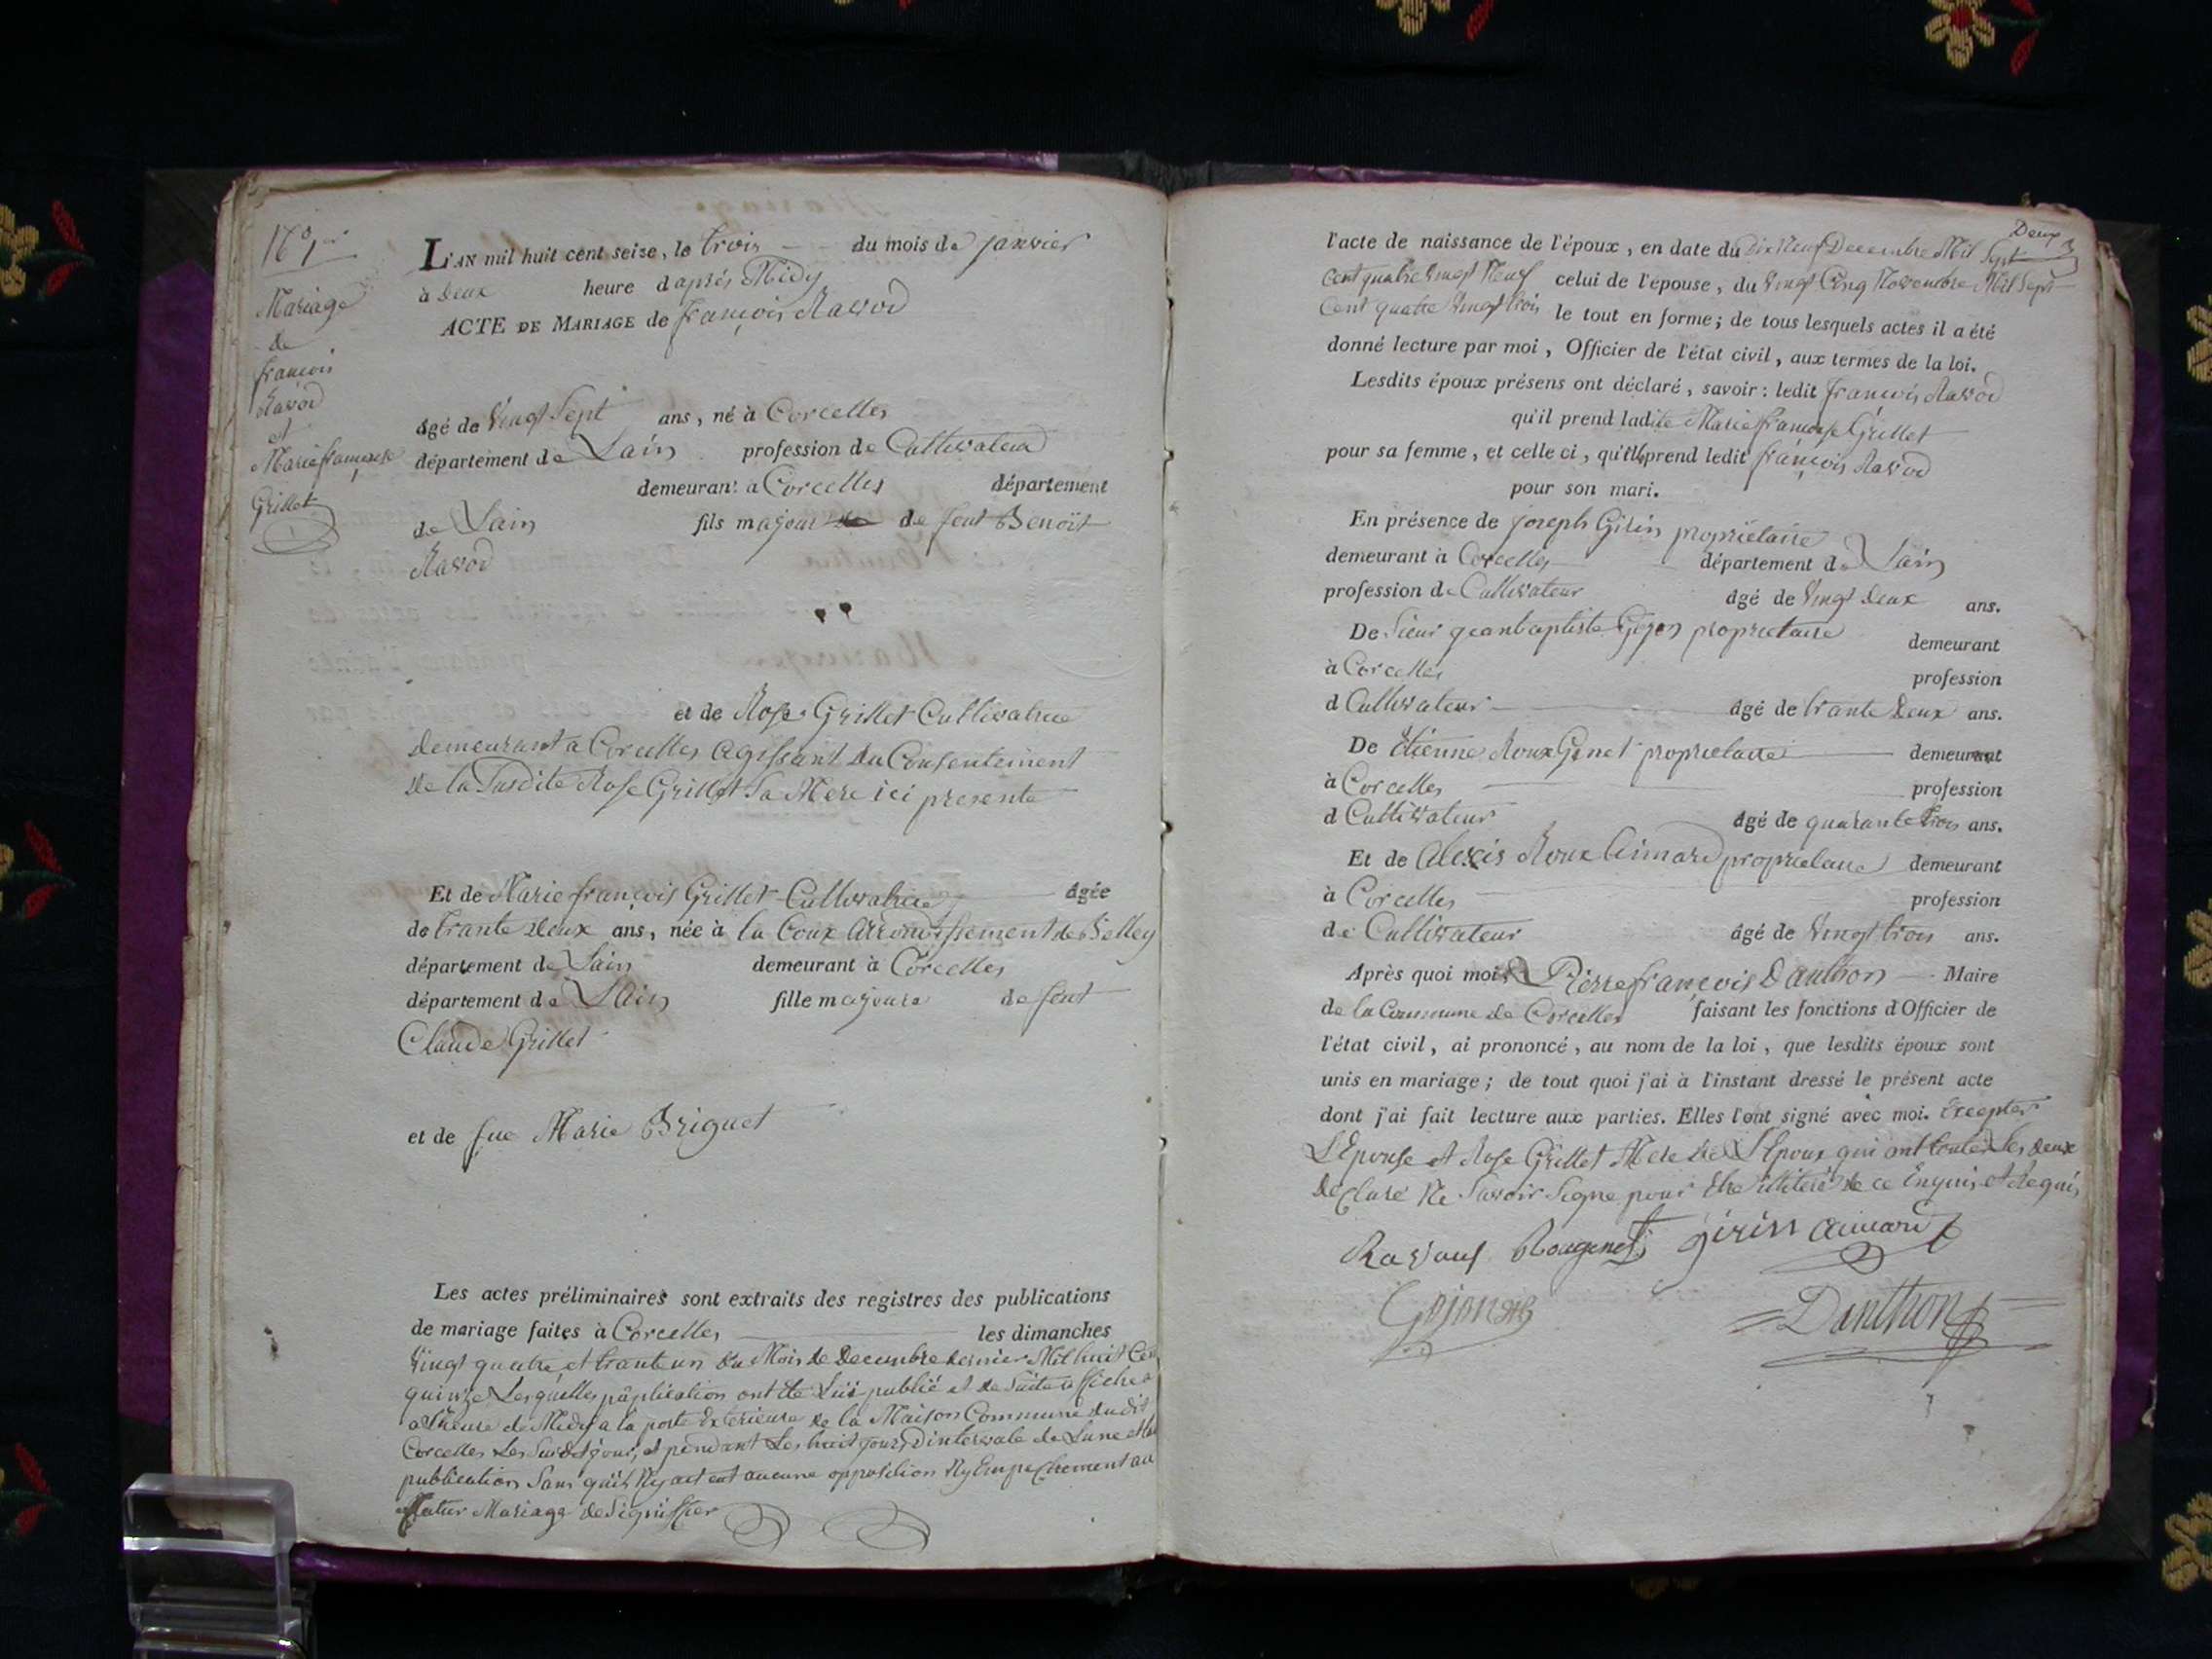 Mariage
de
françois
Ravod
et
Marie françoise
Grillet
L'AN mil huit cent seize, le trois du mois de janvier
à Deux heure d'aprés Midy
ACTE DE MARIAGE de françois Ravod
âgé de Vingt Sept ans, né à Corcelles
département de Lain profession de Cultivateur
demeurant à Corcelles département
de Lain fils majour de feut Benoit
Ravod
et de Rose Grillet Cultivatrice
Demeurant a Corcelles agissant du Consentement
De la Susdite Rose Grillet Sa Mere ici presente
Et de Marie françois Grillet Cultivatrice âgée
de trante Deux ans, née à la Coux Arrondissement de Belley
département de Lain demeurant à Corcelles
département de Lain fille majoure de feut
Claude Grillet
et de fue Marie Briguet
Les actes préliminaires sont extraits des registres des publications
de mariage faites à Corcelles les dimanches
Vingt quatre et trante un du Mois de Decembre dernier Mil huit Cent
quinze Lesquelles publication ont été Lüe publié et de Suite affiché
a L'heure de Midy a la porte Exterieure de la Maison Commune dudit
Corcelles Les Susdit jour, et pendant Les huit jours D'intervale de Lune et
publication Sans quil Ny ait eut aucune opposition Ny Empechement au
futur Mariage de Signiffier
Deux
l'acte de naissance de l'époux, en date du Dix Neuf Decembre Mil Sept
Cent quatre Vingt Neuf celui de l'épouse, du Vingt Cinq Novembre Mil Sept
Cent quatre Vingt trois le tout en forme; de tous lesquels actes il a été
donné lecture par moi, Officier de l'état civil, aux termes de la loi.
Lesdits époux présens ont déclaré, savoir: ledit françois Ravod
qu'il prend ladite Marie françoise Grillet
pour sa femme, et celle ci, qu'elle prend ledit françois Ravod
pour son mari.
En présence de joseph Girin propriétaire
demeurant à Corcelles département de Lain
profession de Cultivateur âgé de Vingt Deux ans.
De Sieur jeanbaptiste Gojon propriétaire demeurant
à Corcelles profession
d Cultivateur âgé de trante Deux ans.
De Etienne Roux Genet propriétaire demeurant
à Corcelles profession
d Cultivateur âgé de quarante trois ans.
Et de Alexis Roux Aimard propriétaire demeurant
à Corcelles profession
de Cultivateur âgé de Vingt trois ans.
Après quoi moi, Pierre françois Danthon Maire
de la Commune de Corcelles faisant les fonctions d'Officier de
l'état civil, ai prononcé, au nom de la loi, que lesdits époux sont
unis en mariage; de tout quoi j'ai à l'instant dressé le présent acte
dont j'ai fait lecture aux parties. Elles l'ont signé avec moi. Excepter
L'Epouse et Rose Grillet Mere de L'Epoux qui ont toutes Les deux
declaré Ne Savoir Signe pour Etre illiteré de ce Enquis et Requis
Ravous Rougenet girin aimard
Gojon Danthon